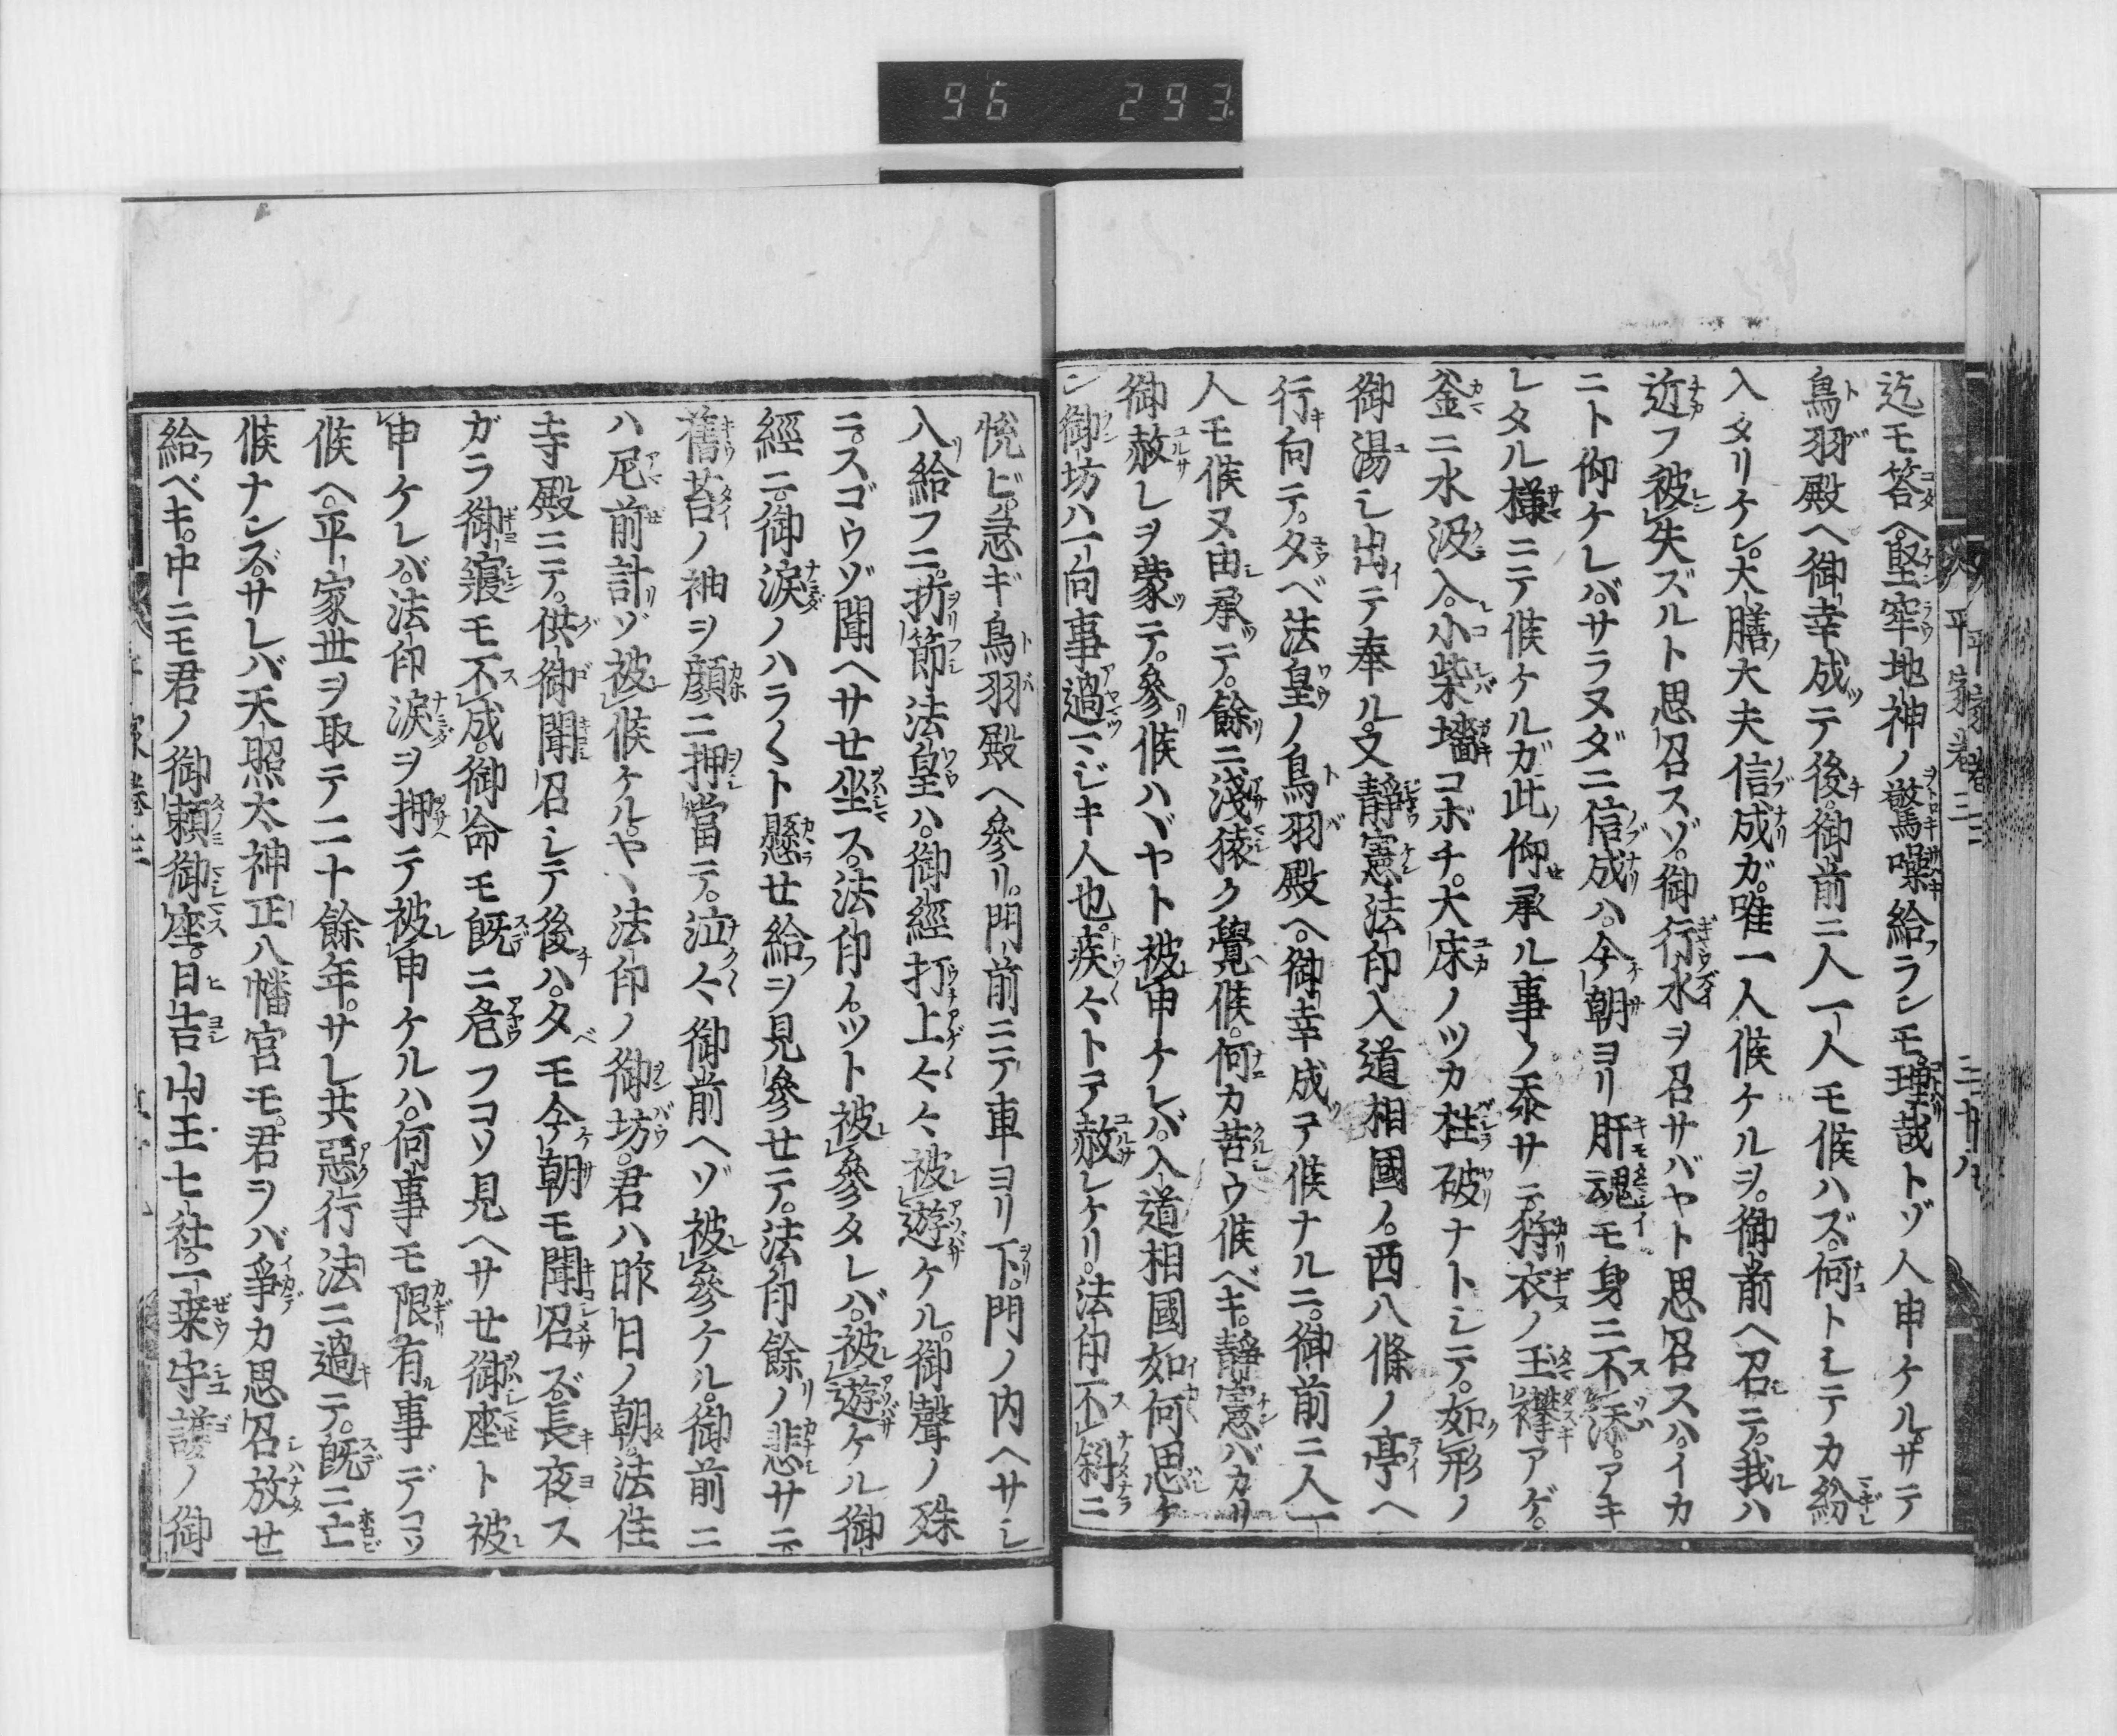 96 293
平家巻三 三十八
迄モ答ヘ堅牢地神ノ驚噪給ランモ理哉トゾ人申ケルサテ
鳥羽殿ヘ御幸成テ後御前ニ人一人モ候ハズ何トシテカ紛
入タリケン大膳大夫信成ガ唯一人候ケルヲ御前ヘ召テ我ハ
近フ被失ズルト思召スゾ御行水ヲ召サバヤト思召スハイカ
ニト仰ケレバサラヌダニ信成ハ今朝ヨリ肝魂モ身ニ不添アキ
レタル様ニテ候ケルガ此仰承ル事ノ忝サニ狩衣ノ玉襷アゲ
釜ニ水汲入小柴墻コボチ大床ノツカ柱破ナトシテ如形ノ
御湯シ出テ奉ル又静憲法印入道相國ノ西八條ノ亭ヘ
行向テ夕ベ法皇ノ鳥羽殿ヘ御幸成テ候ナルニ御前ニ人一
人モ候ヌ由承テ餘ニ淺猿ク覺候何カ苦ウ候ベキ静憲バカリ
御赦レヲ蒙テ參候ハヾヤト被申ケレバ入道相國如何思ケ
ン御坊ハ一向事過マジキ人也疾々トテ赦レケリ法印不斜ニ
悅ビ急ギ鳥羽殿ヘ參リ門前ニテ車ヨリ下門ノ内ヘサシ
入給フニ折節法皇ハ御經打上々々被遊ケル御聲ノ殊
ニスゴウゾ聞ヘサセ坐ス法印ノツト被參タレバ被遊ケル御
經ニ御涙ノハラ〱ト懸セ給フヲ見參セテ法印餘ノ悲サニ
舊苔ノ袖ヲ顏ニ押當テ泣々御前ヘゾ被參ケル御前ニ
ハ尼前計ゾ被候ケルヤヽ法印ノ御坊君ハ昨日ノ朝法住
寺殿ニテ供御聞召シテ後ハ夕ベモ今朝モ聞召ズ長夜ス
ガラ御寢モ不成御命モ既ニ危フコソ見ヘサセ御座ト被
申ケレバ法印涙ヲ押テ被申ケルハ何事モ限有事デコソ
候ヘ平家世ヲ取テ二十餘年サレ共惡行法ニ過テ既ニ亡
候ナンズサレバ天照太神正八幡宮モ君ヲバ爭カ思召放セ
給フベキ中ニモ君ノ御頼御座日吉山王七社一乗守護ノ御